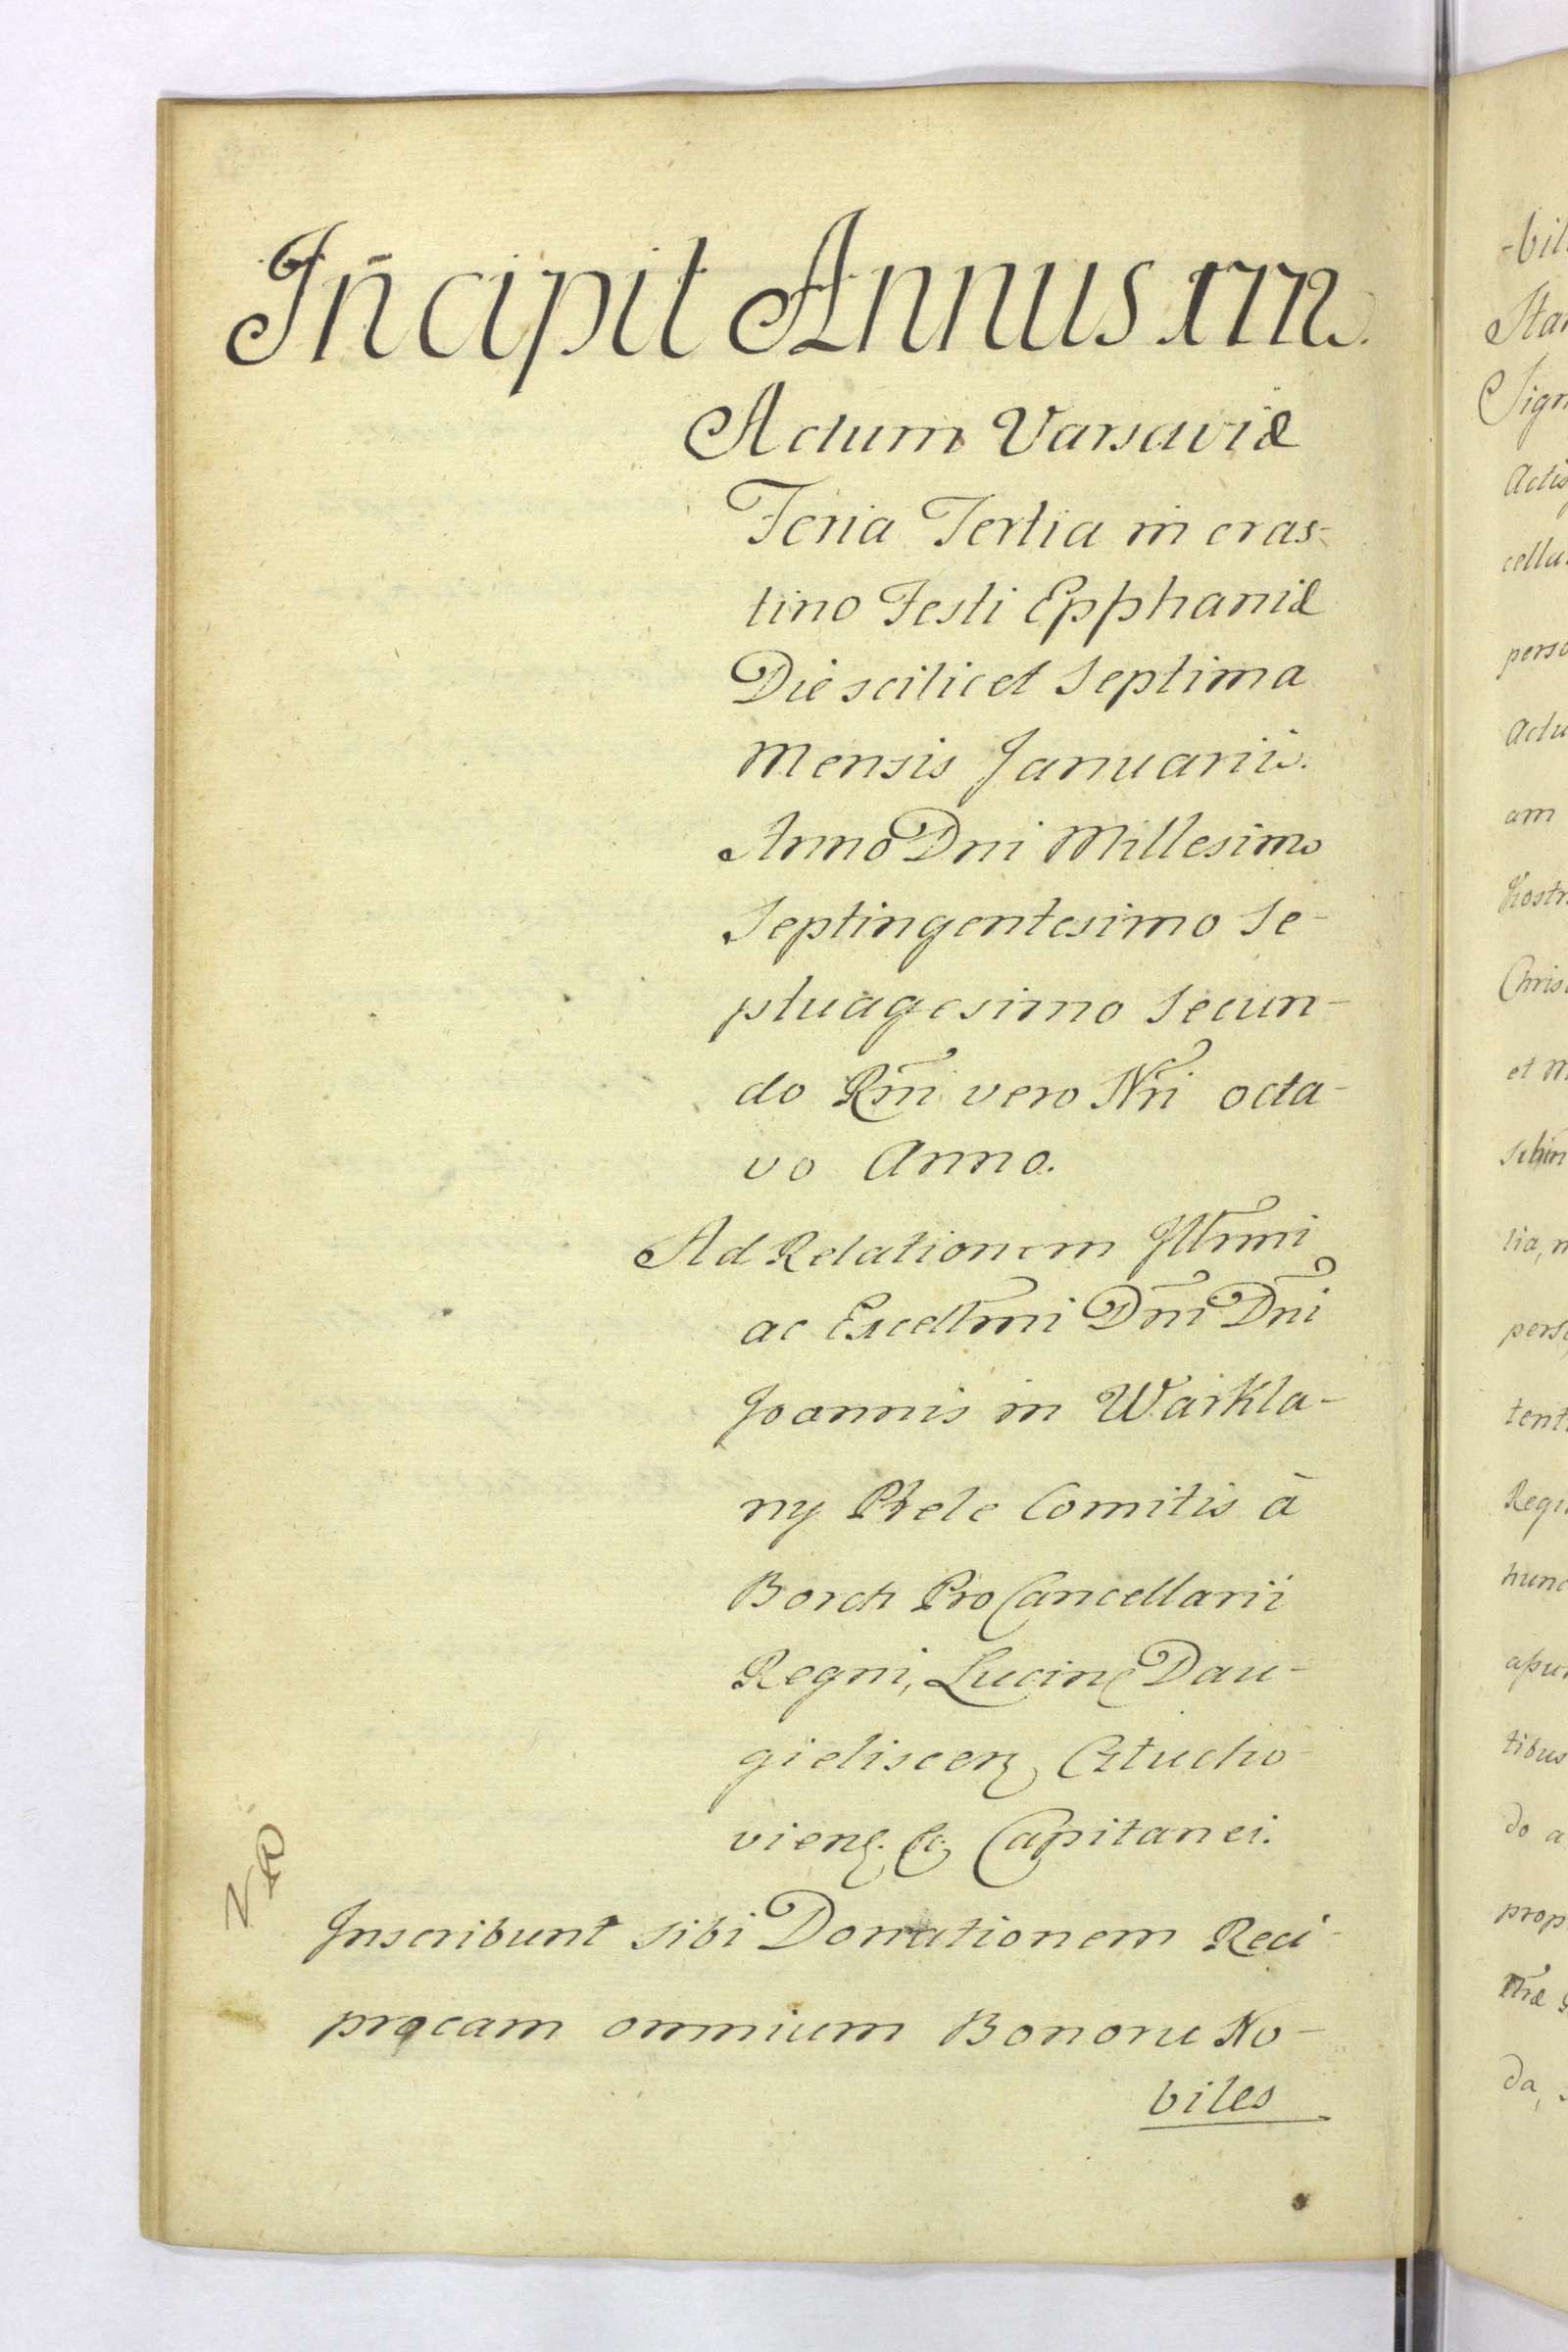 Incipit Annus 1772.
Actum Varsaviæ
Feria Tertia in cras-
tino Festi Epphaniæ
Die scilicet Septima
Mensis Januarii.
Anno Dni Millesimo
Septingentesimo Se-
ptuagesimo Secun-
do Rni vero Nri octa-
vo Anno.
Ad Relationem Illmi
ac Excellmi Dni Dni
Joannis in Warkla-
ny Prele Comitis à
Borch ProCancellarii
Regni, Lucinen Dau-
gieliscen, Cztucho-
vien. &c. Capitanei.
Inscribunt sibi Donationem Reci-
procam omnium Bonoru No-
biles
-bil
Star
Sign
Actis
cella
perso
Actu
am
Chris
et M
lia, n
pers
tent
Regn
hunc
apu
tibus
do a
prop
da,